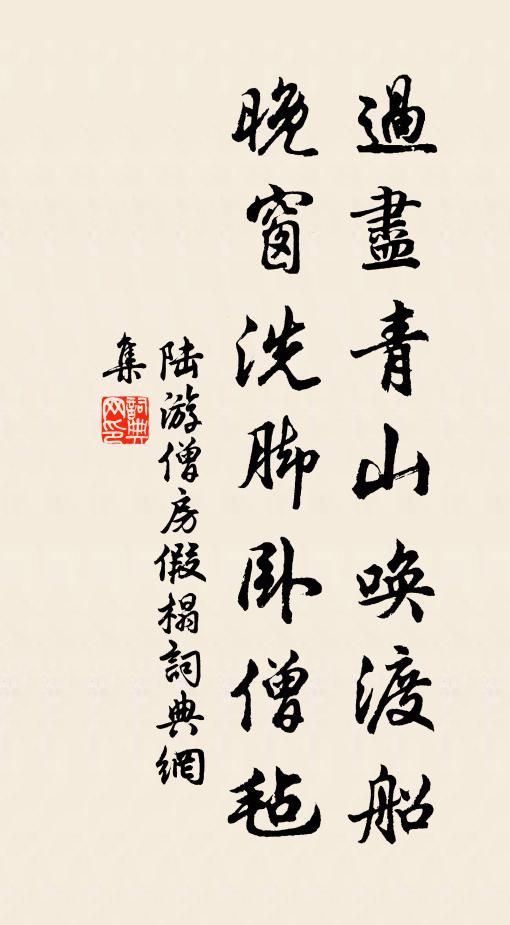 過盡青山喚渡船
晚窗洗脚卧僧毡
陆游僧房假榻詞典網
集
詞典
网印